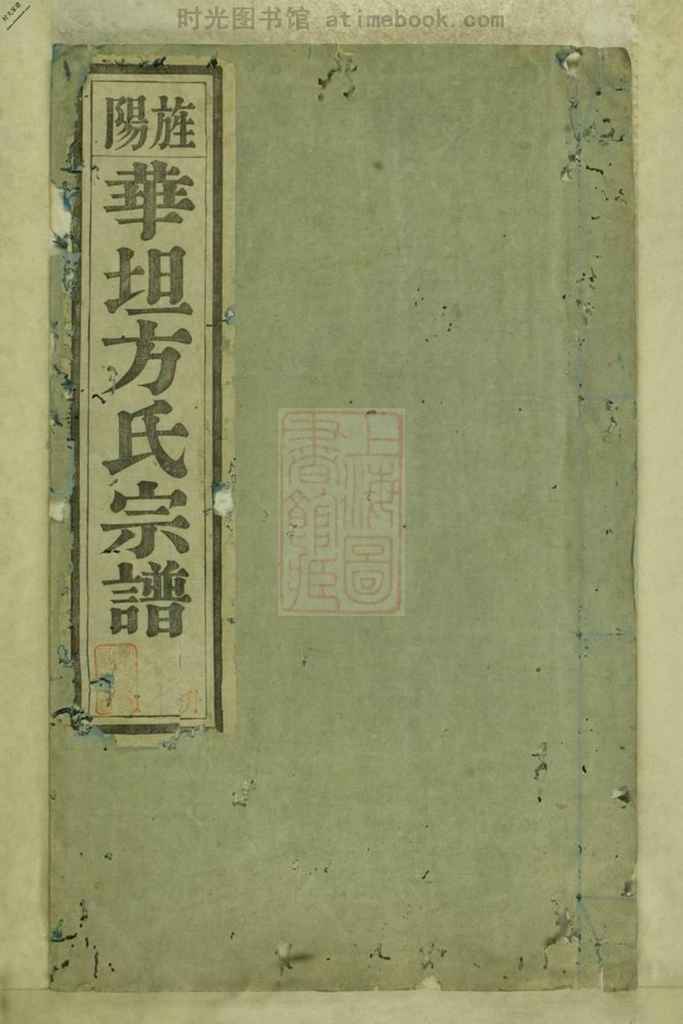 时光图书馆 atimebook.com
旌陽
華坦方氏宗譜
上海圖
書館藏